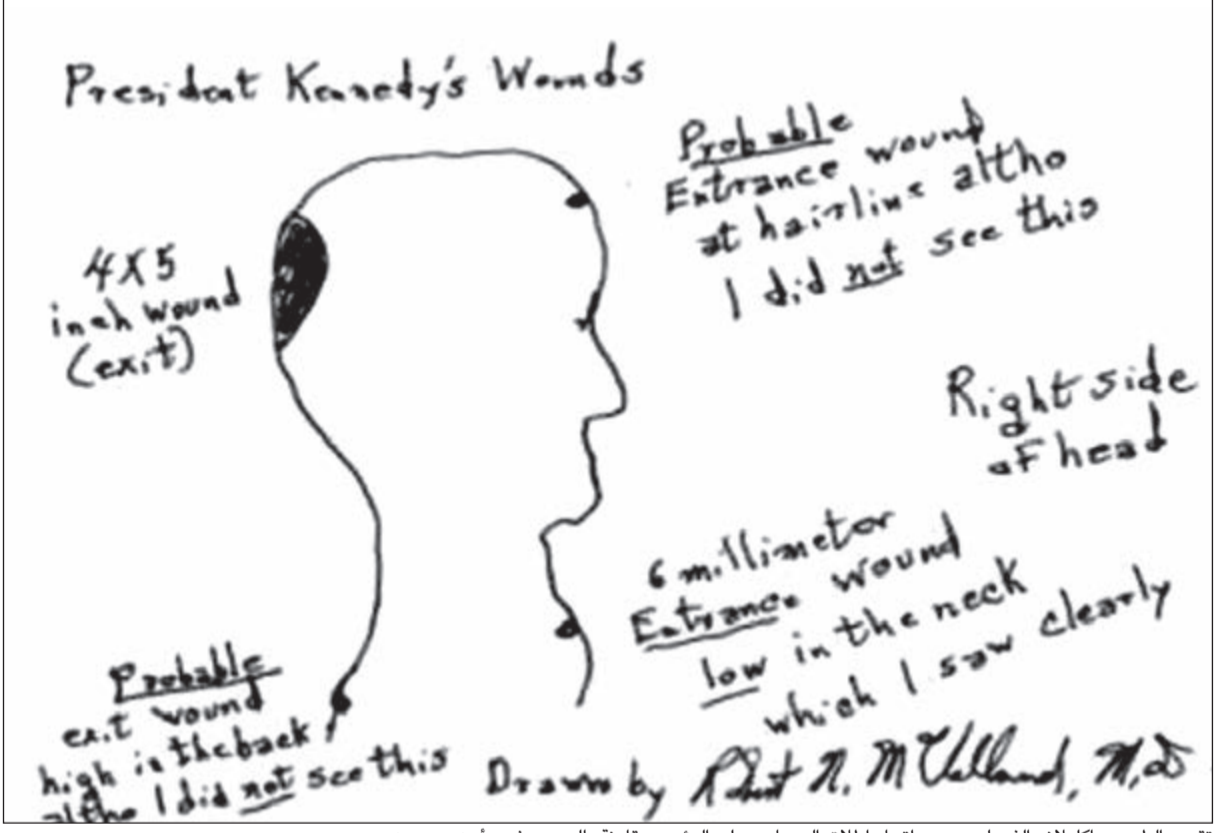 President Kennedy's Wounds
Probable
Entrance wound
at hairline altho
I did not see this
4X5
inch wound
(exit)
Right side
of head
6 millimeter
Entrance wound
low in the neck
which I saw clearly
Probable
exit wound
high in the back
altho I did not see this
Drawn by Robert N. McClelland, M.D